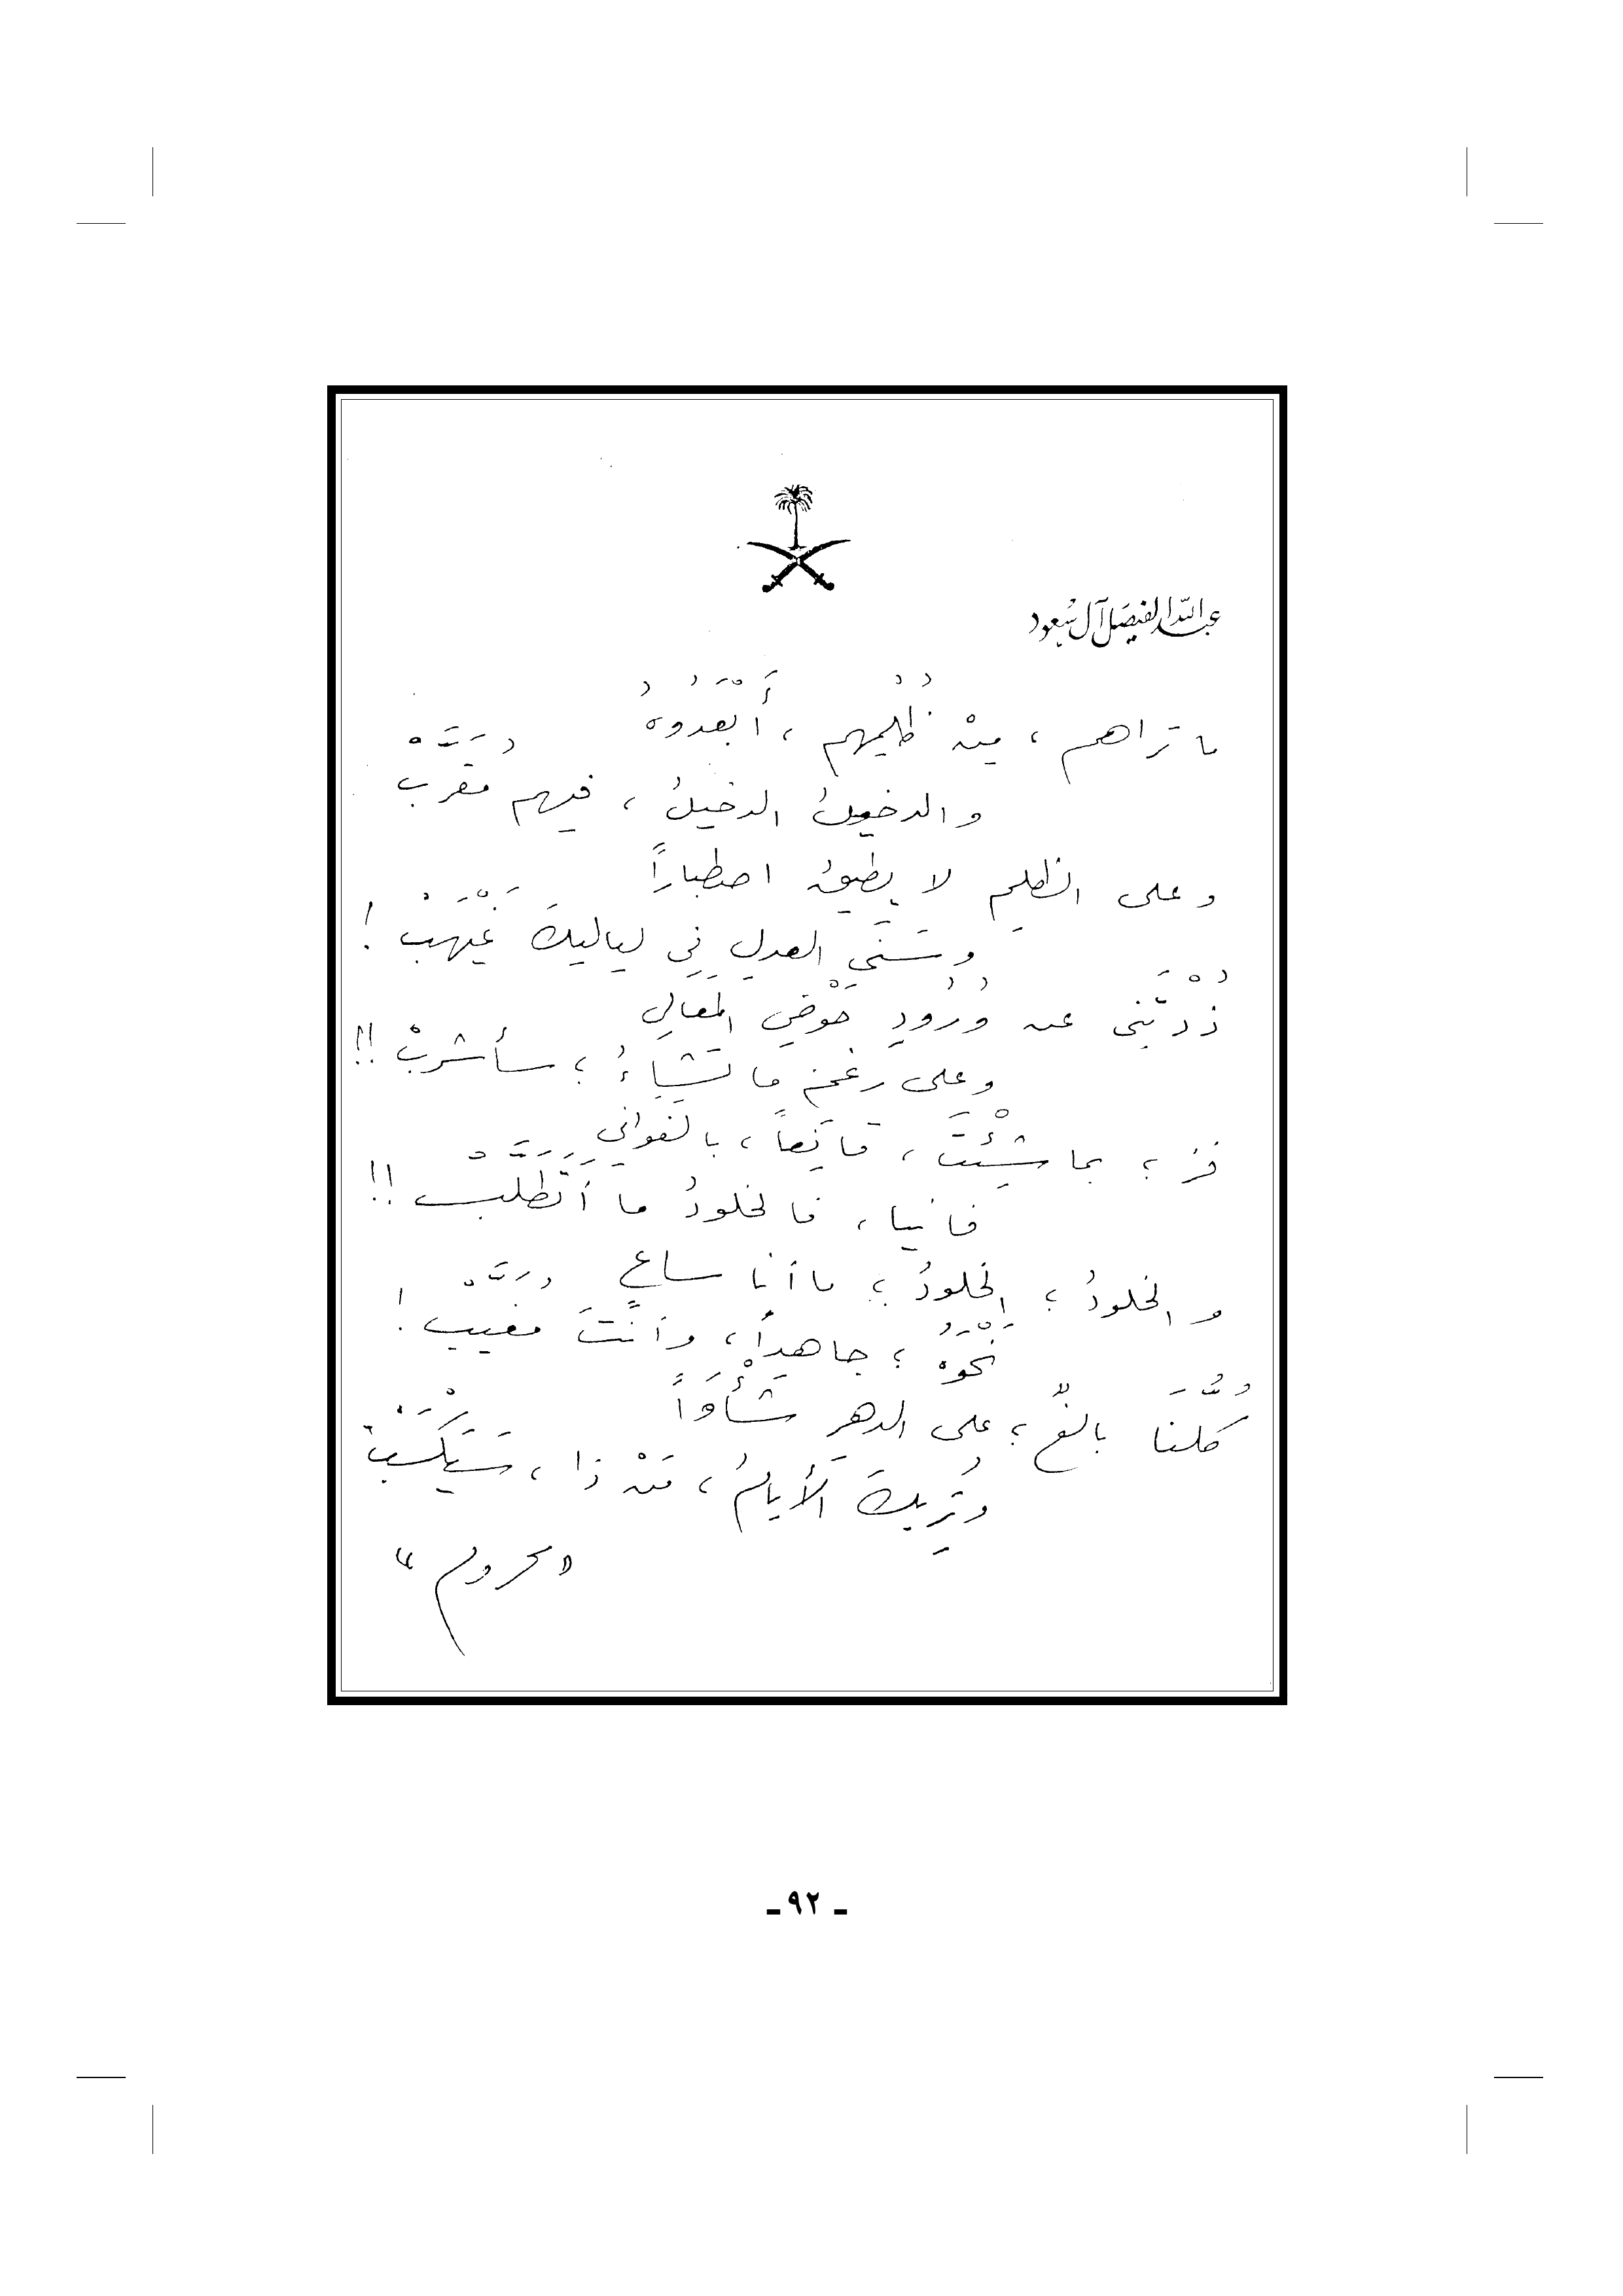 عبدالله الفيصل آل سعود
ما تراهم ، مِنْ ظُلْمِهِم ، أَبْعَدُوهُ
والدخيلُ الدخيلُ ، فيهم مُقَرَّبْ
وعلى الظلمِ لا يطيقُ اصطباراً
وسَنَى العدلِ في لياليكَ غَيْهَبْ !
ذُدْتَني عن وُرُودِ حَوْضِ المَعالي
وعلى رغم ما تَشَاءُ ؛ سأشربْ !!
فز ؛ بما شِئْتَ ، قانِعاً ، بالغواني
فانيا ، فالخلودُ ما أَتَطَلَّبْ !!
والخلودُ ؛ الخلودُ ؛ ما أنا ساعٍ
نَحْوَهُ ؛ جاهداً ، وأنتَ مُغَيَّبْ !
كُلُّنا بالغٌ ؛ على الدهرِ شَأْوَاً
وتُرِيكَ الأيامُ ، مَنْ ذا ، سَيَكْسَبْ
"محروم"
ـ ٩٢ ـ